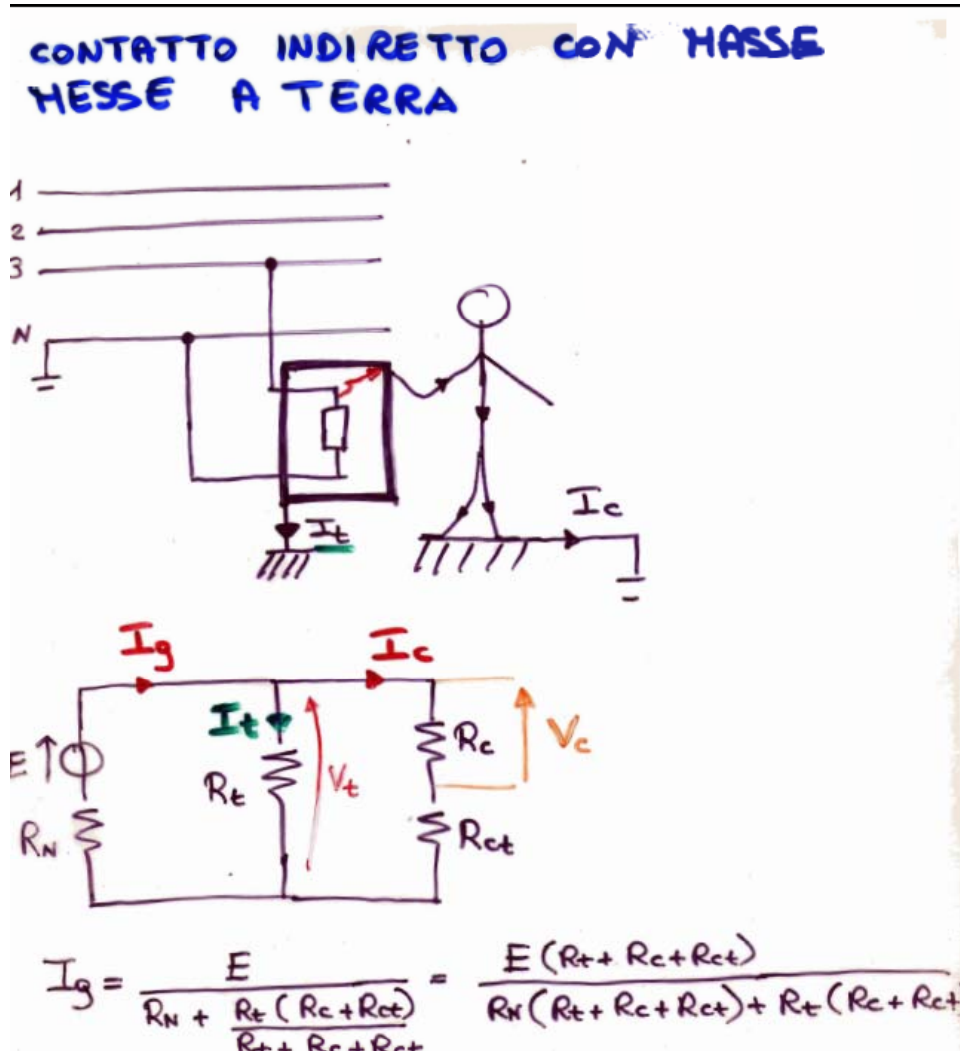 CONTATTO INDIRETTO CON MASSE
MESSE A TERRA
1
2
3
N
It
Ic
Ig
Ic
It
E
Rc
Vc
Rt
Vt
RN
Rct
Ig = E / (RN + Rt (Rc+Rct) / (Rt + Rc + Rct)) = E (Rt + Rc + Rct) / (RN (Rt + Rc + Rct) + Rt (Rc + Rct